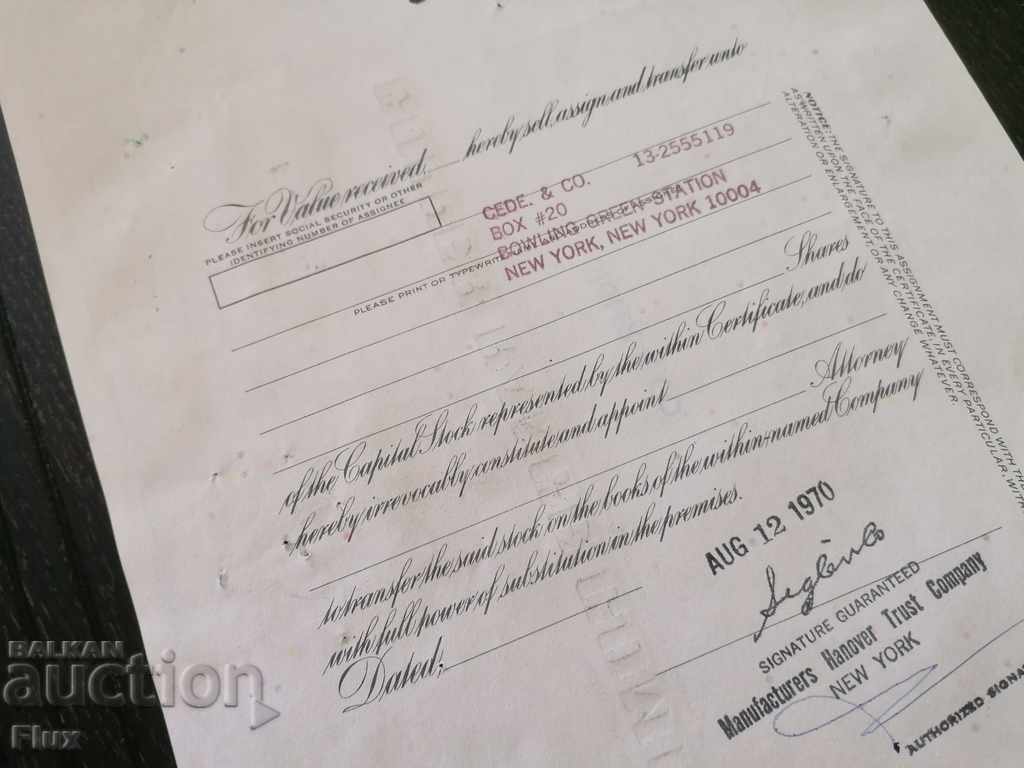 For Value received, hereby sell, assign, and transfer unto
PLEASE INSERT SOCIAL SECURITY OR OTHER
IDENTIFYING NUMBER OF ASSIGNEE
CEDE. & CO. 13-2555119
BOX #20
BOWLING GREEN STATION
NEW YORK, NEW YORK 10004
PLEASE PRINT OR TYPEWRITE
Shares
of the Capital Stock represented by the within Certificate, and do
hereby irrevocably constitute and appoint
Attorney
to transfer the said stock on the books of the within-named Company
with full power of substitution in the premises.
Dated,
AUG 12 1970
SIGNATURE GUARANTEED
Manufacturers Hanover Trust Company
NEW YORK
AUTHORIZED SIGNA
NOTICE: THE SIGNATURE TO THIS ASSIGNMENT MUST CORRESPOND WITH THE
AS WRITTEN UPON THE FACE OF THE CERTIFICATE IN EVERY PARTICULAR WITH
ALTERATION OR ENLARGEMENT, OR ANY CHANGE WHATEVER.
BALKAN
auction
Flux